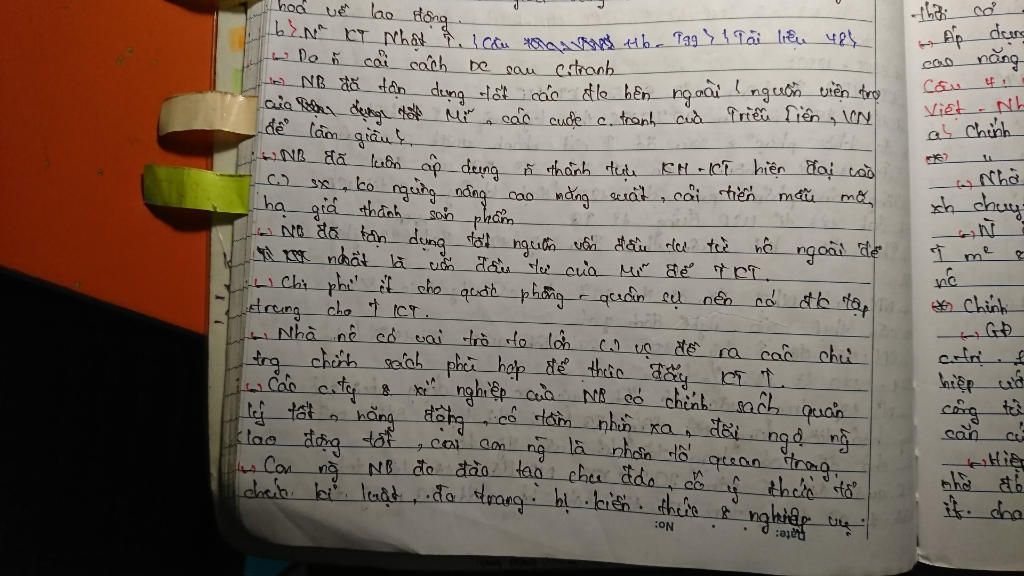 hoá về lao động.
b) N² KT Nhật ↑. (Câu Hb - T99) (Tài liệu 48)
↪ Do ñ cải cách DC sau c.tranh
↪ NB đã tận dụng tốt các đk bên ngoài (nguồn viện trợ
của Mĩ, các cuộc c.tranh của Triều Tiên, VN
để làm giàu).
↪ NB đã luôn áp dụng ñ thành tựu KH-KT hiện đại vào
C.) sx, ko ngừng nâng cao năng suất, cải tiến mẫu mã,
hạ giá thành sản phẩm
↪ NB đã tận dụng tốt nguồn vốn đầu tư từ nc ngoài để
nhất là vốn đầu tư của Mĩ để ↑ KT.
↪ Chi phí ít cho quốc phòng - quân sự nên có đk tập
trung cho ↑ KT.
↪ Nhà nc có vai trò to lớn C.) vc đề ra các chủ
trg chính sách phù hợp để thúc đẩy KT ↑.
↪ Các c.ty & xí nghiệp của NB có chính sách quản
lý tốt, năng động, có tầm nhìn xa, đãi ngộ ng
lao động tốt, coi con ng là nhân tố quan trọng.
↪ Con ng NB đc đào tạo chu đáo, có ý thức tổ
chức kỉ luật, đc trang bị kiến thức & nghiệp vụ.
No:
Date:
-thời cơ
↪ Áp dụng
cao năng
Câu 4:
Việt - Nh
a) Chính
"
↪ Nhờ
xh chuy
↪ N
↑ m²
nc
Chính
c.trị.
hiệp
công
căn cứ
↪ Hiệp
nhờ đó